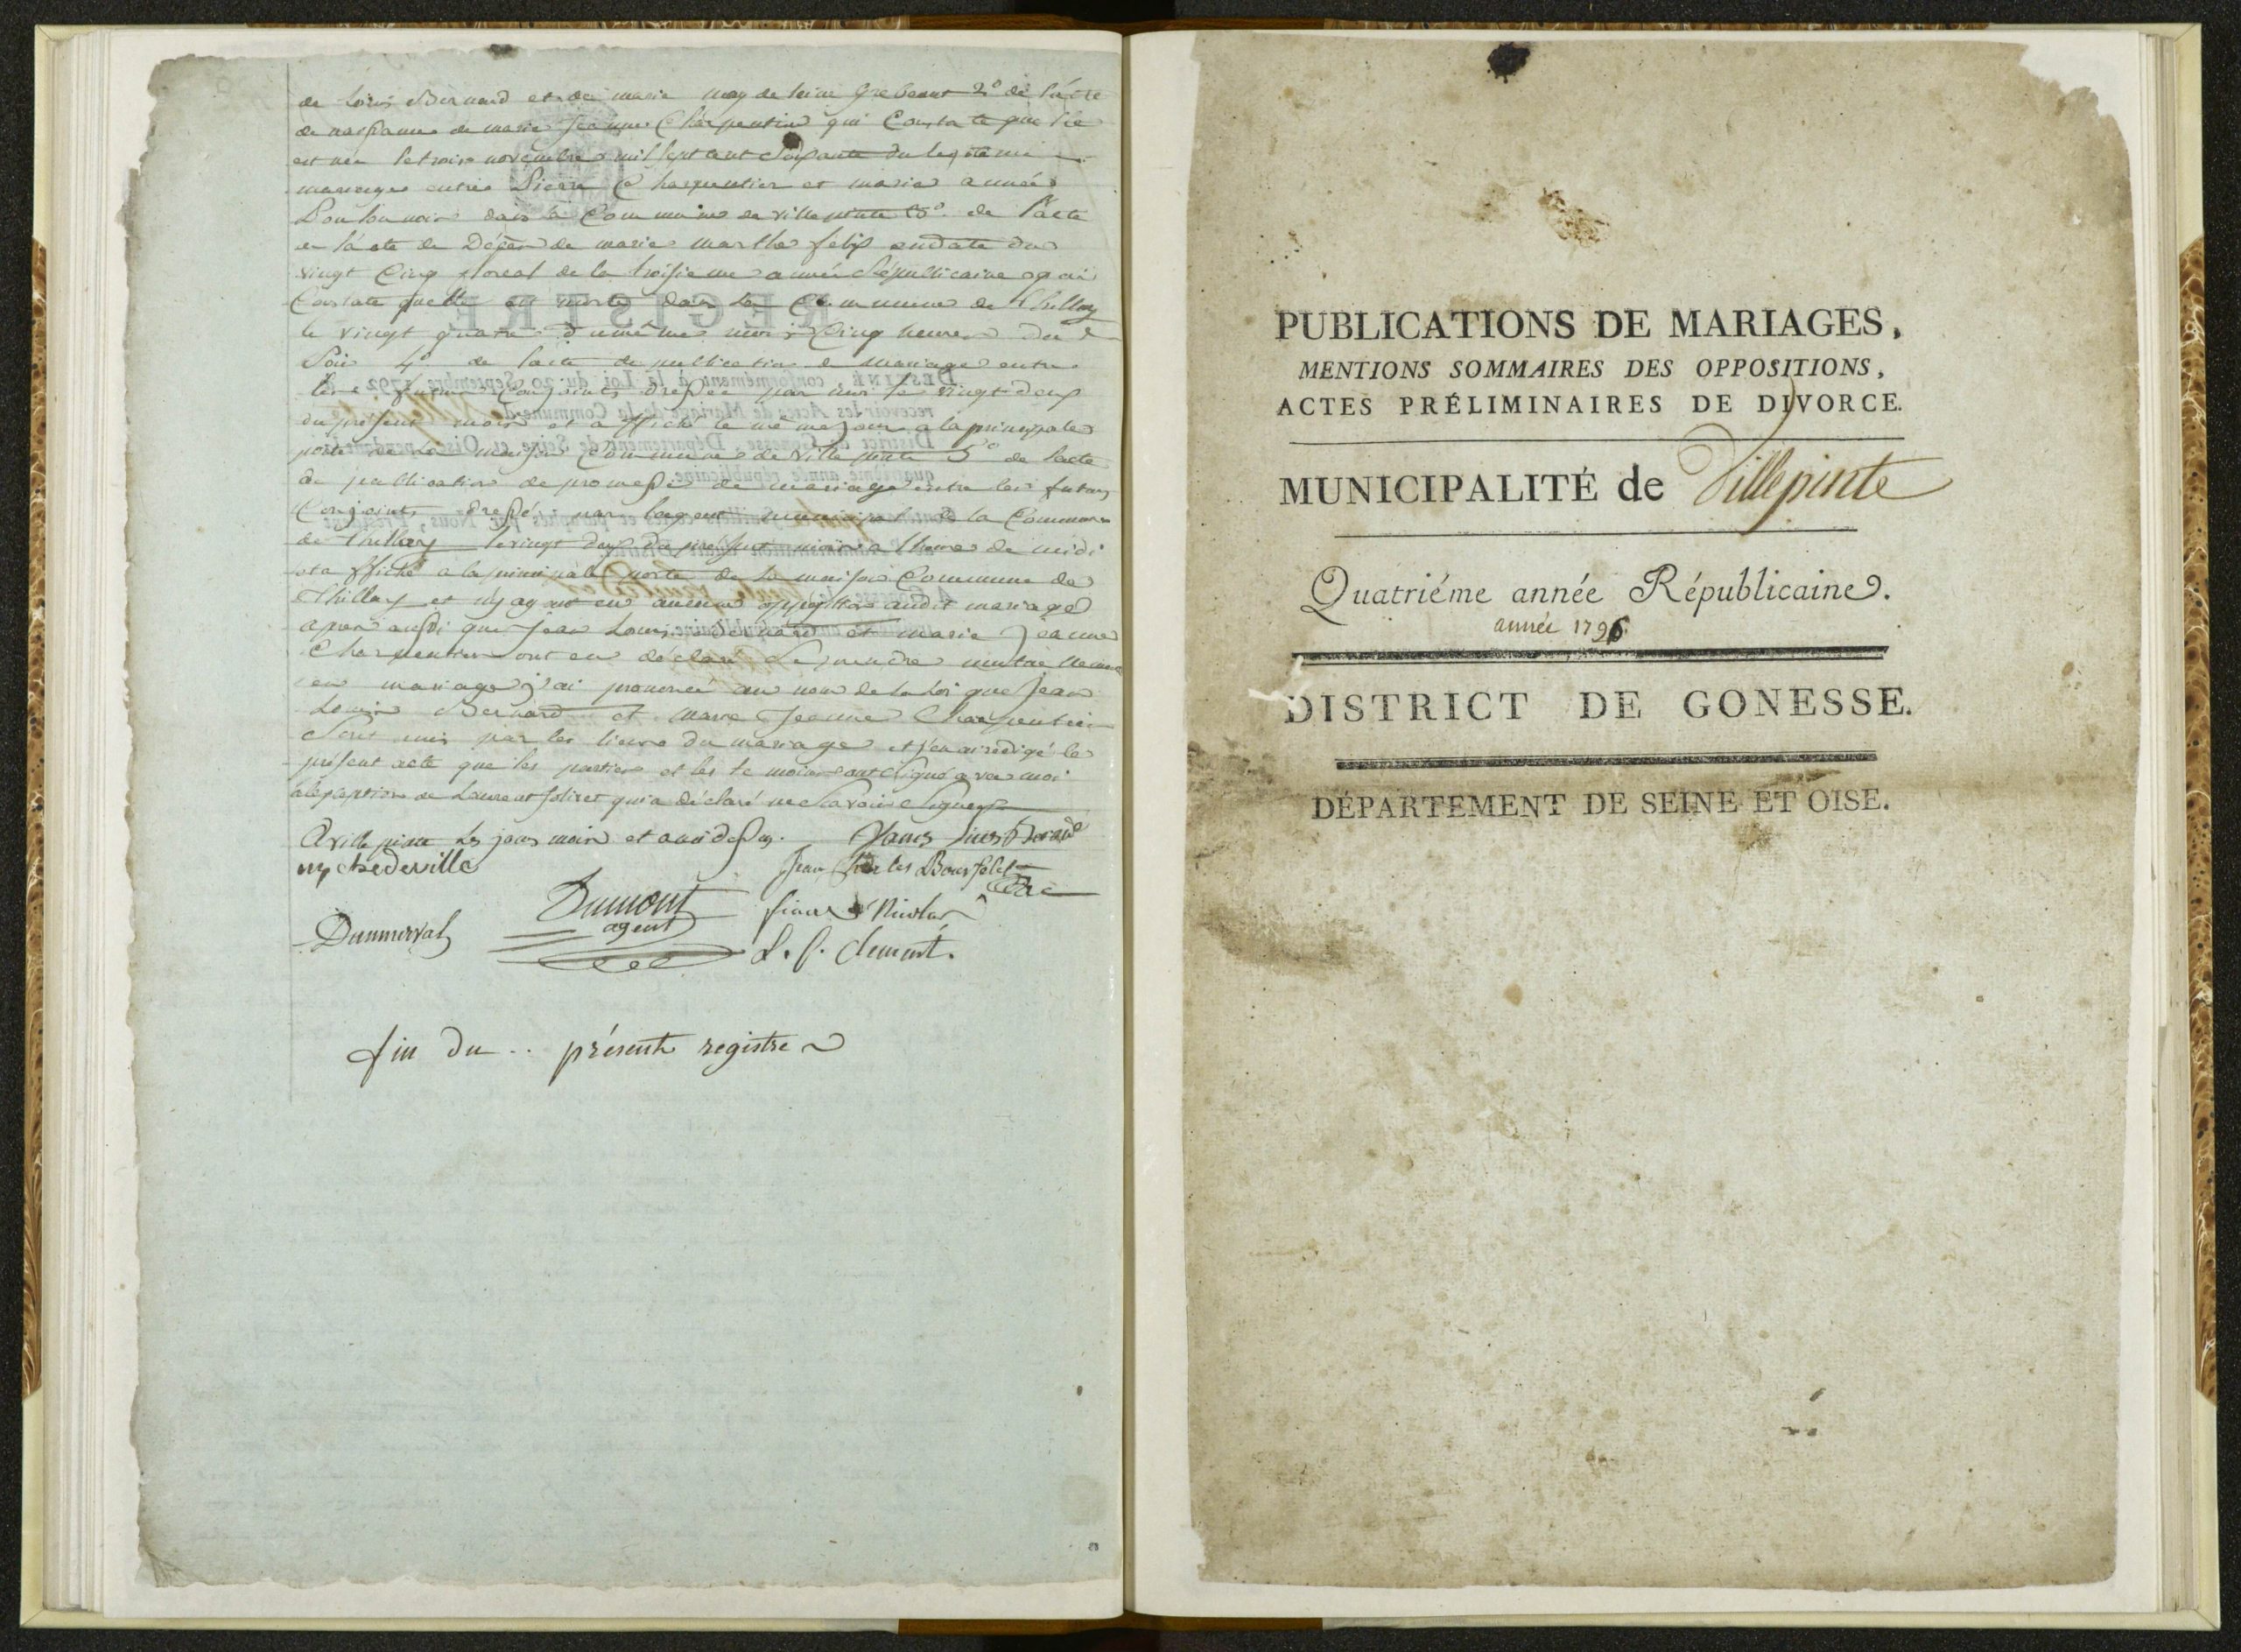 de Louis Bernard et de marie magdeleine 2° de l'acte
de naissance de marie Jeanne Charpentier qui Constate quelle
est née le trois novembre mil sept cent soixante du légitime
mariage entre Pierre Charpentier et marie année
dans la Commune de villepinte 3° de l'acte
de décès de marie marthe felix en date du
vingt Cinq floreal de la troisieme année Républicaine qui
Constate quelle est morte dans la Commune de thillay
le vingt quatre du même mois Cinq heures du
Soir 4° de l'acte de publication de mariage entre
les futurs Conjoints dressé par moi le vingt deux
du présent mois et affiché le même jour a la principale
porte de la maison Commune de Villepinte 5° de l'acte
de publication de promesse de mariage entre les futurs
Conjoints dressé par lagent municipal de la Commune
de thillay le vingt deux du présent mois a lheure de midi
et affiché a la principale porte de la maison Commune de
Thillay et ny ayant eu aucune opposition audit mariage
apres aussi que Jean Louis Bernard et marie Jeanne
Charpentier ont eu déclaré se prendre mutuellement
en mariage j'ai prononcé au nom de la loi que Jean
Louis Bernard et marie Jeanne Charpentier
Sont unis par les liens du mariage et j'en ai rédigé le
présent acte que les parties et les temoins ont signé avec moi
a lexception de Laurent qui a déclaré ne savoir signer
A villepinte les jours mois et an dessus.
Jean Charles
Dumont
agent
Nicolas
L. f. Clement.
fin du .. présent registre
PUBLICATIONS DE MARIAGES,
MENTIONS SOMMAIRES DES OPPOSITIONS,
ACTES PRÉLIMINAIRES DE DIVORCE.
MUNICIPALITÉ de Villepinte
Quatriéme année Républicaine.
année 1796.
DISTRICT DE GONESSE.
DÉPARTEMENT DE SEINE ET OISE.